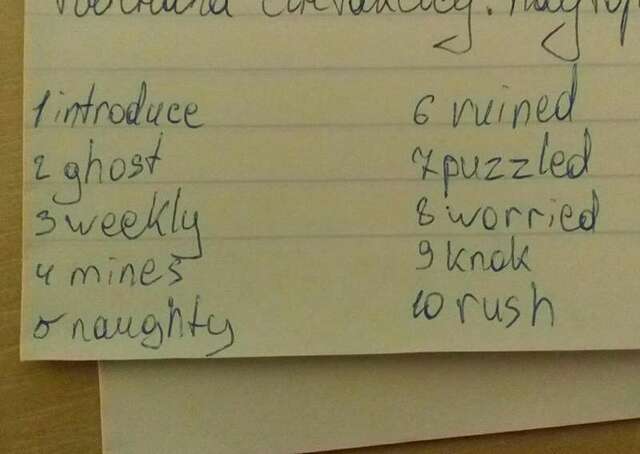 1 introduce
2 ghost
3 weekly
4 mines
5 naughty
6 ruined
7 puzzled
8 worried
9 knok
10 rush